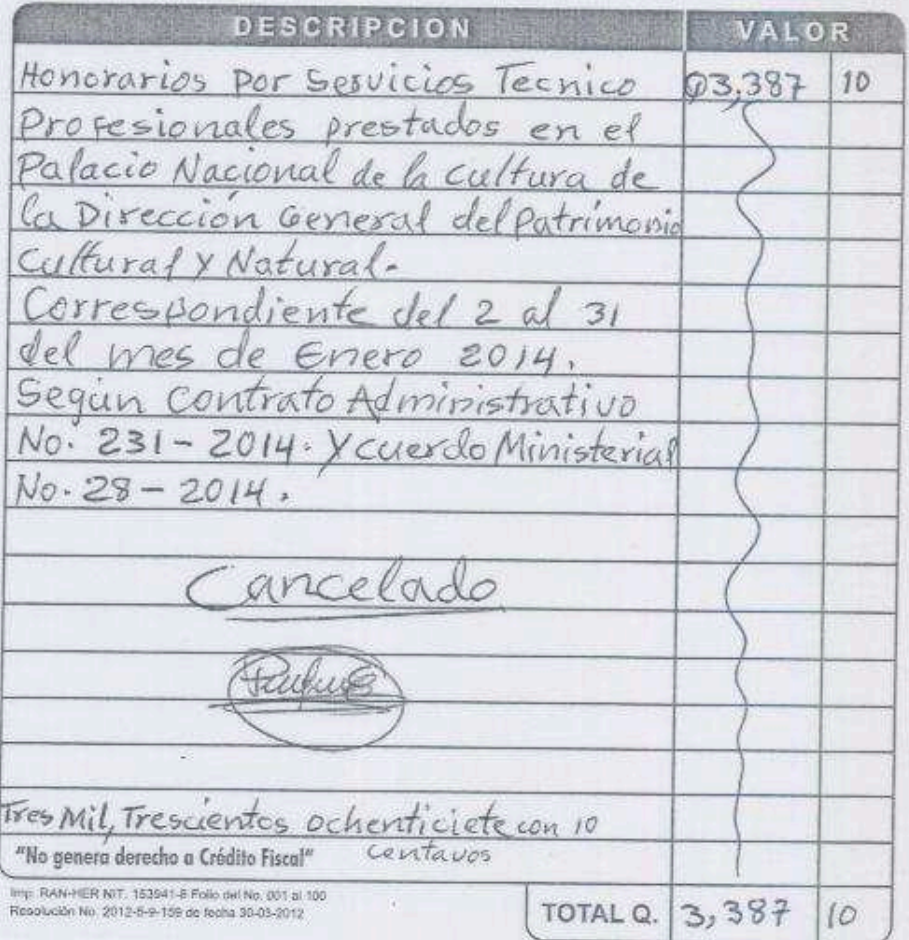 DESCRIPCION VALOR
Honorarios por Servicios Tecnico Q3,387 10
Profesionales prestados en el
Palacio Nacional de la Cultura de
la Dirección General del Patrimonio
Cultural y Natural.
Correspondiente del 2 al 31
del mes de Enero 2014.
Según Contrato Administrativo
No. 231-2014. Y cuerdo Ministerial
No. 28-2014.
Cancelado
Tres Mil, Trescientos ochenticiete con 10
"No genera derecho a Crédito Fiscal" centavos
Imp. RAN-HER NIT. 153941-8 Folio del No. 001 al 100
Resolución No. 2012-5-9-159 de fecha 30-03-2012
TOTAL Q. 3,387 10